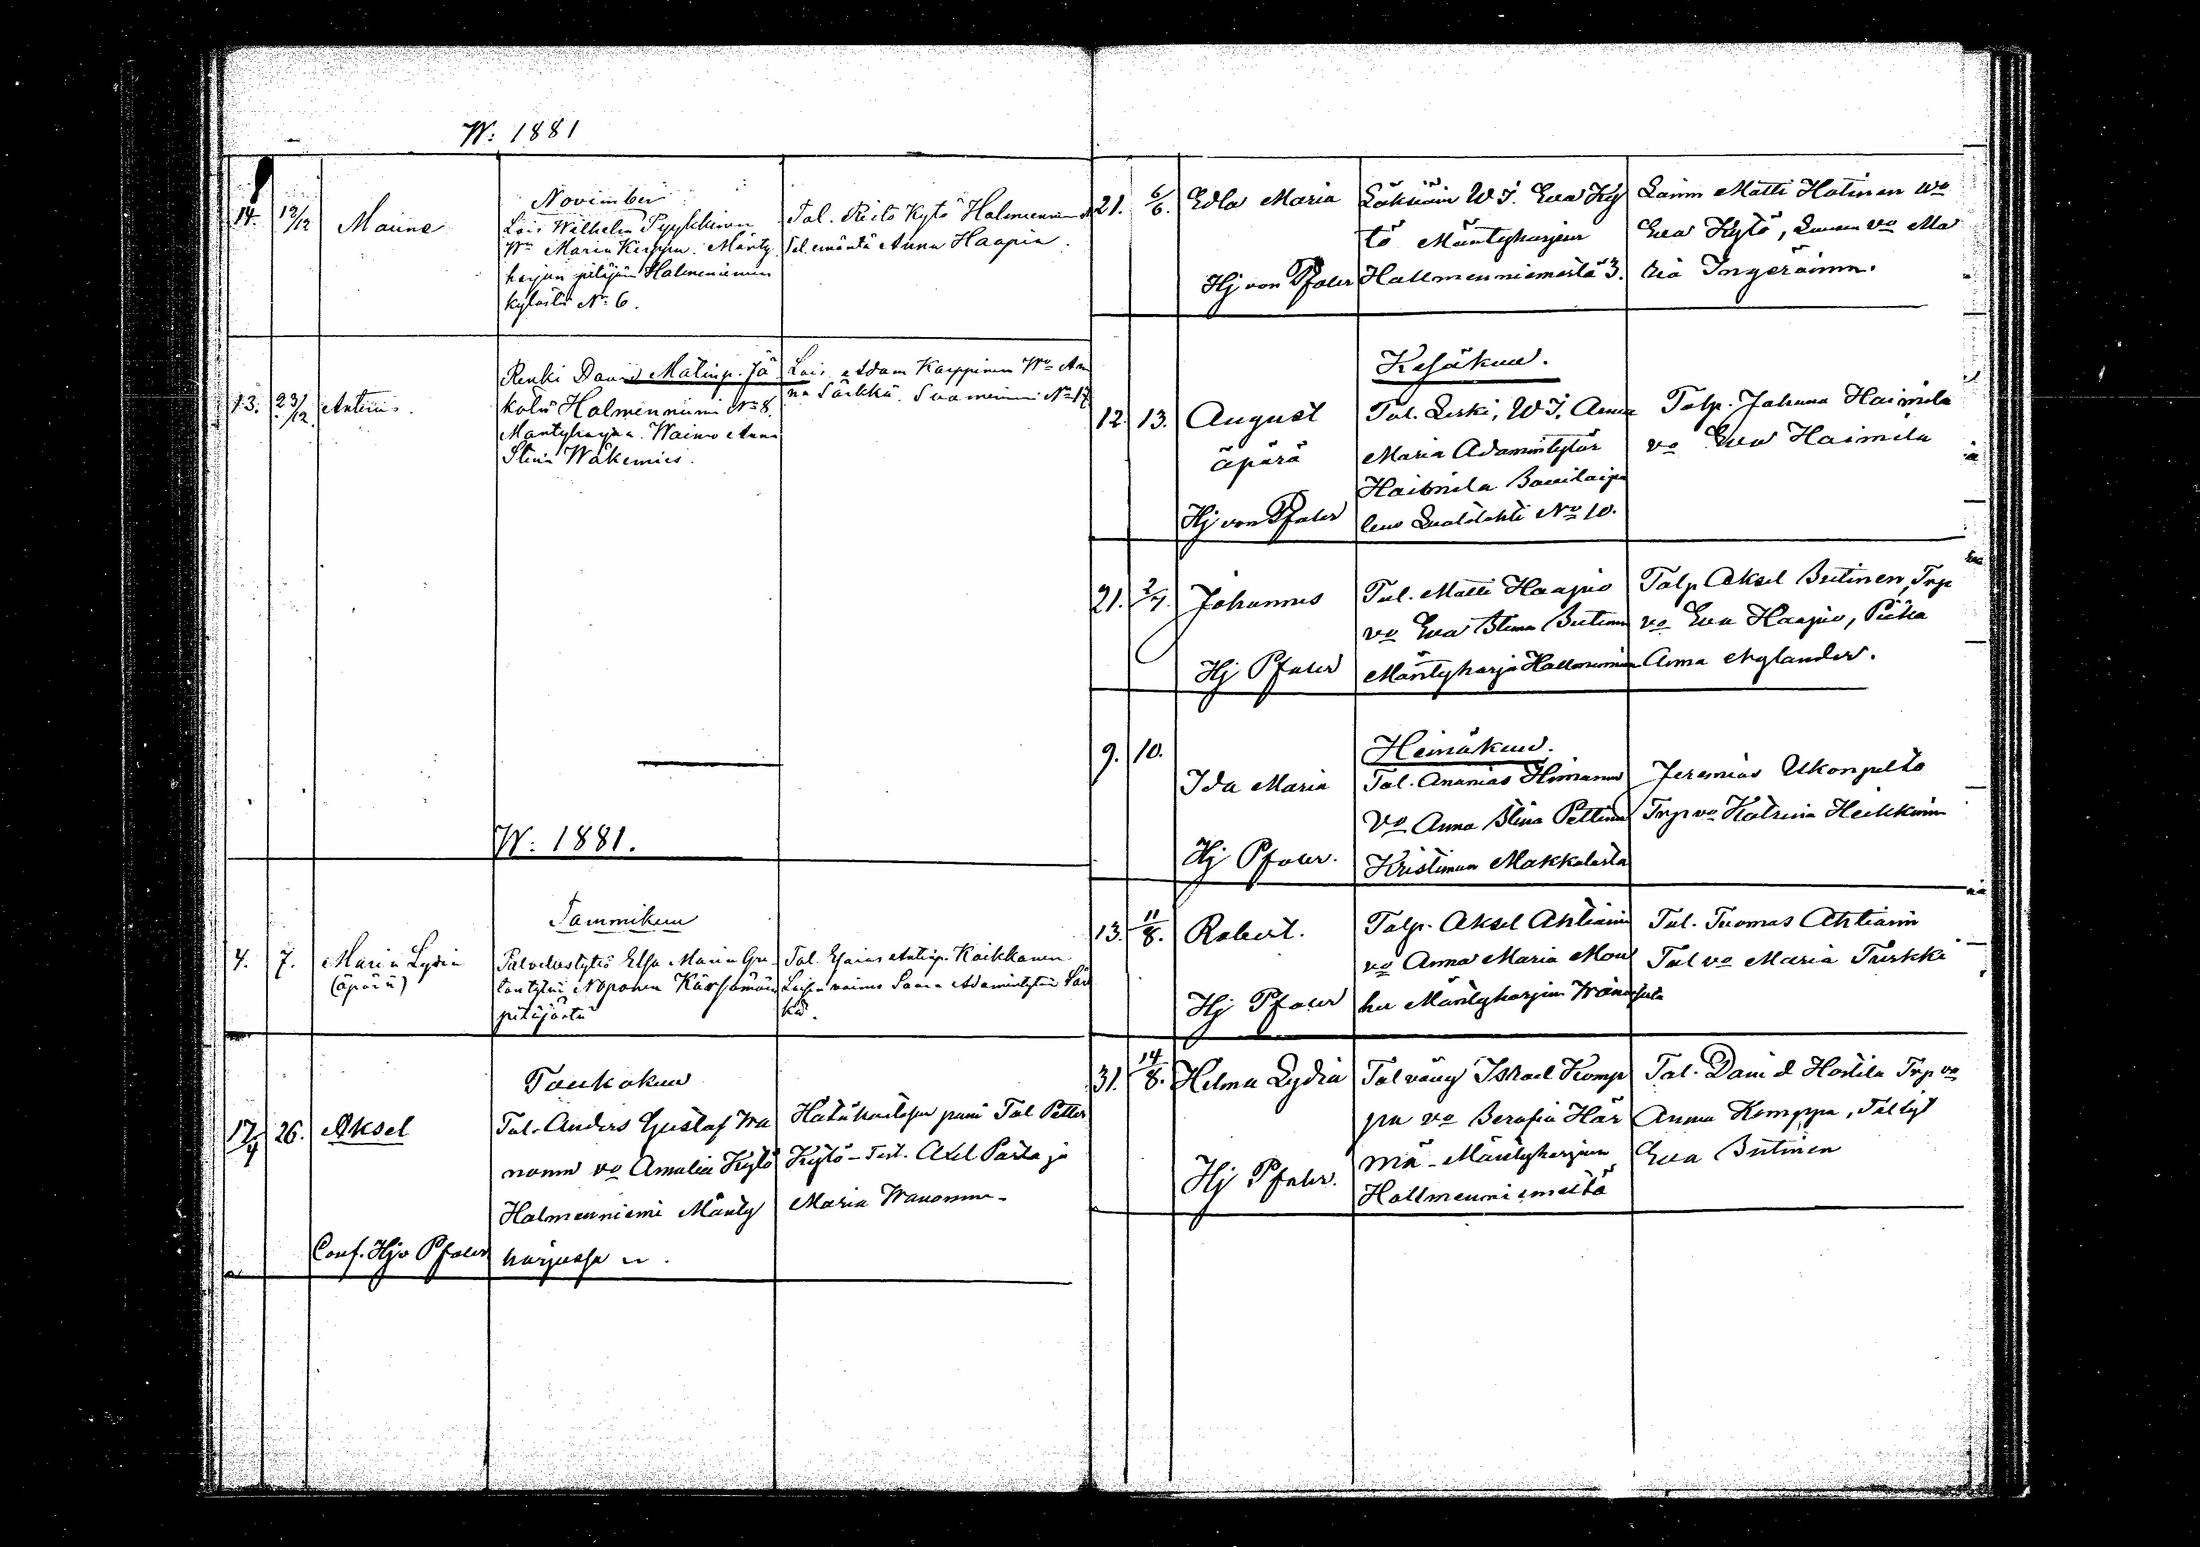 W: 1881
November
14. 12/12 Maine
Lois Wilhelm Pyykkinen
Wo Maria Kirppu. Mänty
harjun pitäjän Halmeniemen
kylästä No 6.
Tal. Risto Kytö Halmenniemi
Tal. emäntä Anna Haapia.
13. 23/12. Anterus.
Renki David Matinp. Jä
Halmenniemi No 8.
Mäntyharjua. Waimo Anna
Stina Wäkemies.
Lois. Adam Karppinen Wo An
na Särkkä. Suomeniemi No 17
W: 1881.
Tammikuu
4. 7. Maria Lydia
(äpärä)
Palvelustyttö Elsa Maria
Noponen Kärsämäen
pitäjästä
Tal. Esaias Antinp. Kaikkonen
Loisen vaimo Saara Adamintytär Sär
kä.
Toukokuu
17/4 26. Aksel
Tal. Anders Gustaf Wa
nonen vo Amalia Kytö
Halmenniemi Mänty
harjussa
Conf. Hj v Pfaler
Hätäkasteen pani Tal Petter
Kytö - Test. Axel Pasta ja
Maria Wanonen.
21. 6/6. Edla Maria
Hj von Pfaler
W T. Eva Ky
tö Mäntyharjun
Hallmenniemestä 3.
Matti Hatinen wo
Eva Kytö, vo Ma
ria Ingeröinen.
Kesäkuu.
12. 13. August
äpärä
Hj von Pfaler
Tal. Leski, W T. Anna
Maria Adamintytär
Haimila Savitaipa
leus No 10.
Talp. Johana Haimila
vo Eva Haimila
21. 2/7. Johannes
Hj Pfaler
Tal. Matti Haapio
vo Eva Stina Sutinen
Mäntyharju Hallmenniemi
Talp Aksel Sutinen, Trp
vo Eva Haapio, Piika
Anna Nylander.
Heinäkuu.
9. 10. Ida Maria
Hj Pfaler.
Tal. Ananias Himanen
Vo Anna Stina Pettinen
Kristiinan Makkolasta
Jeremias Ukonpelto
Trp vo Katrina Heikkinen
13. 11/8. Robert.
Hj Pfaler
Talp. Aksel Ahtiainen
vo Anna Maria Mou
hu Mäntyharjun
Tal. Tuomas Ahtiainen
Tal vo Maria Turkki
31. 14/8. Helma Lydia
Hj Pfaler.
Tal vävy Israel Komp
pa vo Serafia Här
mä - Mäntyharjun
Hallmenniemestä
Tal. David Hostila Trp vo
Anna Komppa, Tal tyt
Eva Sutinen